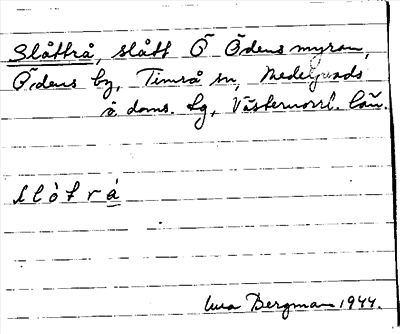 Slåttrå, slått Ö Ödensmyran,
Ödens by, Timrå sn, Medelpads
å doms. hg, Västernorrl. län.
slòtrȧ
Bergman 1944.